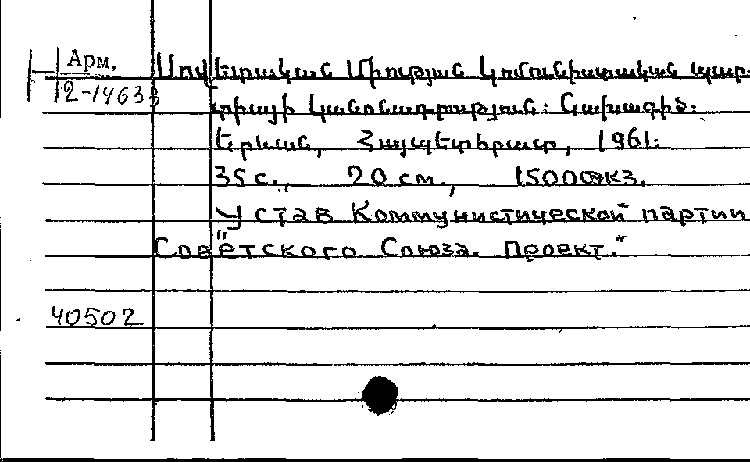 Арм.
2-14633
Սովետական Միության Կոմունիստական պար-
տիայի կանոնադրություն: Նախագիծ.
Երևան, Հայպետհրատ, 1961.
35 с., 20 см., 15000 экз.
Устав Коммунистической партии
Советского Союза. Проект."
40502